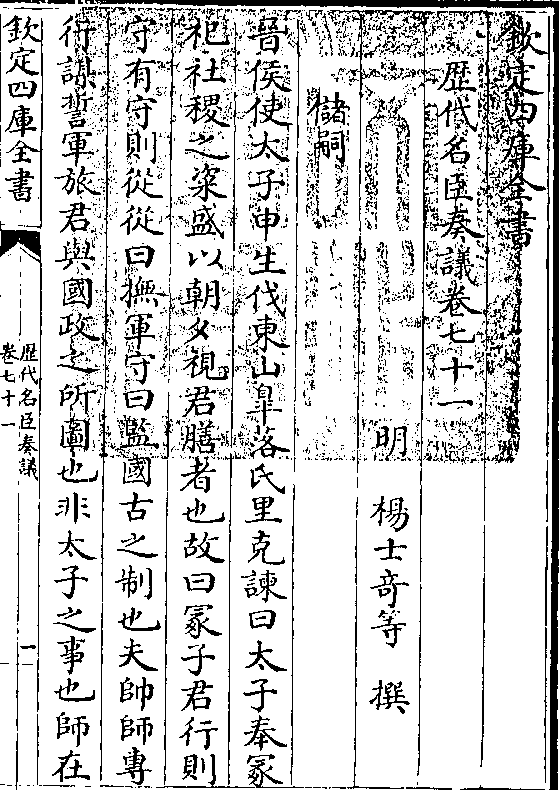 欽定四庫全書
歴代名臣奏議卷七十一
明 楊士竒等 撰
儲嗣
晉侯使太子申生伐東山臯落氏里克諫曰太子奉冢
祀社稷之粢盛以朝夕視君膳者也故曰冢子君行則
守有守則從從曰撫軍守曰監國古之制也夫帥師專
行謀誓軍旅君與國政之所圖也非太子之事也師在
欽定四庫全書
歴代名臣奏議
卷七十一
一